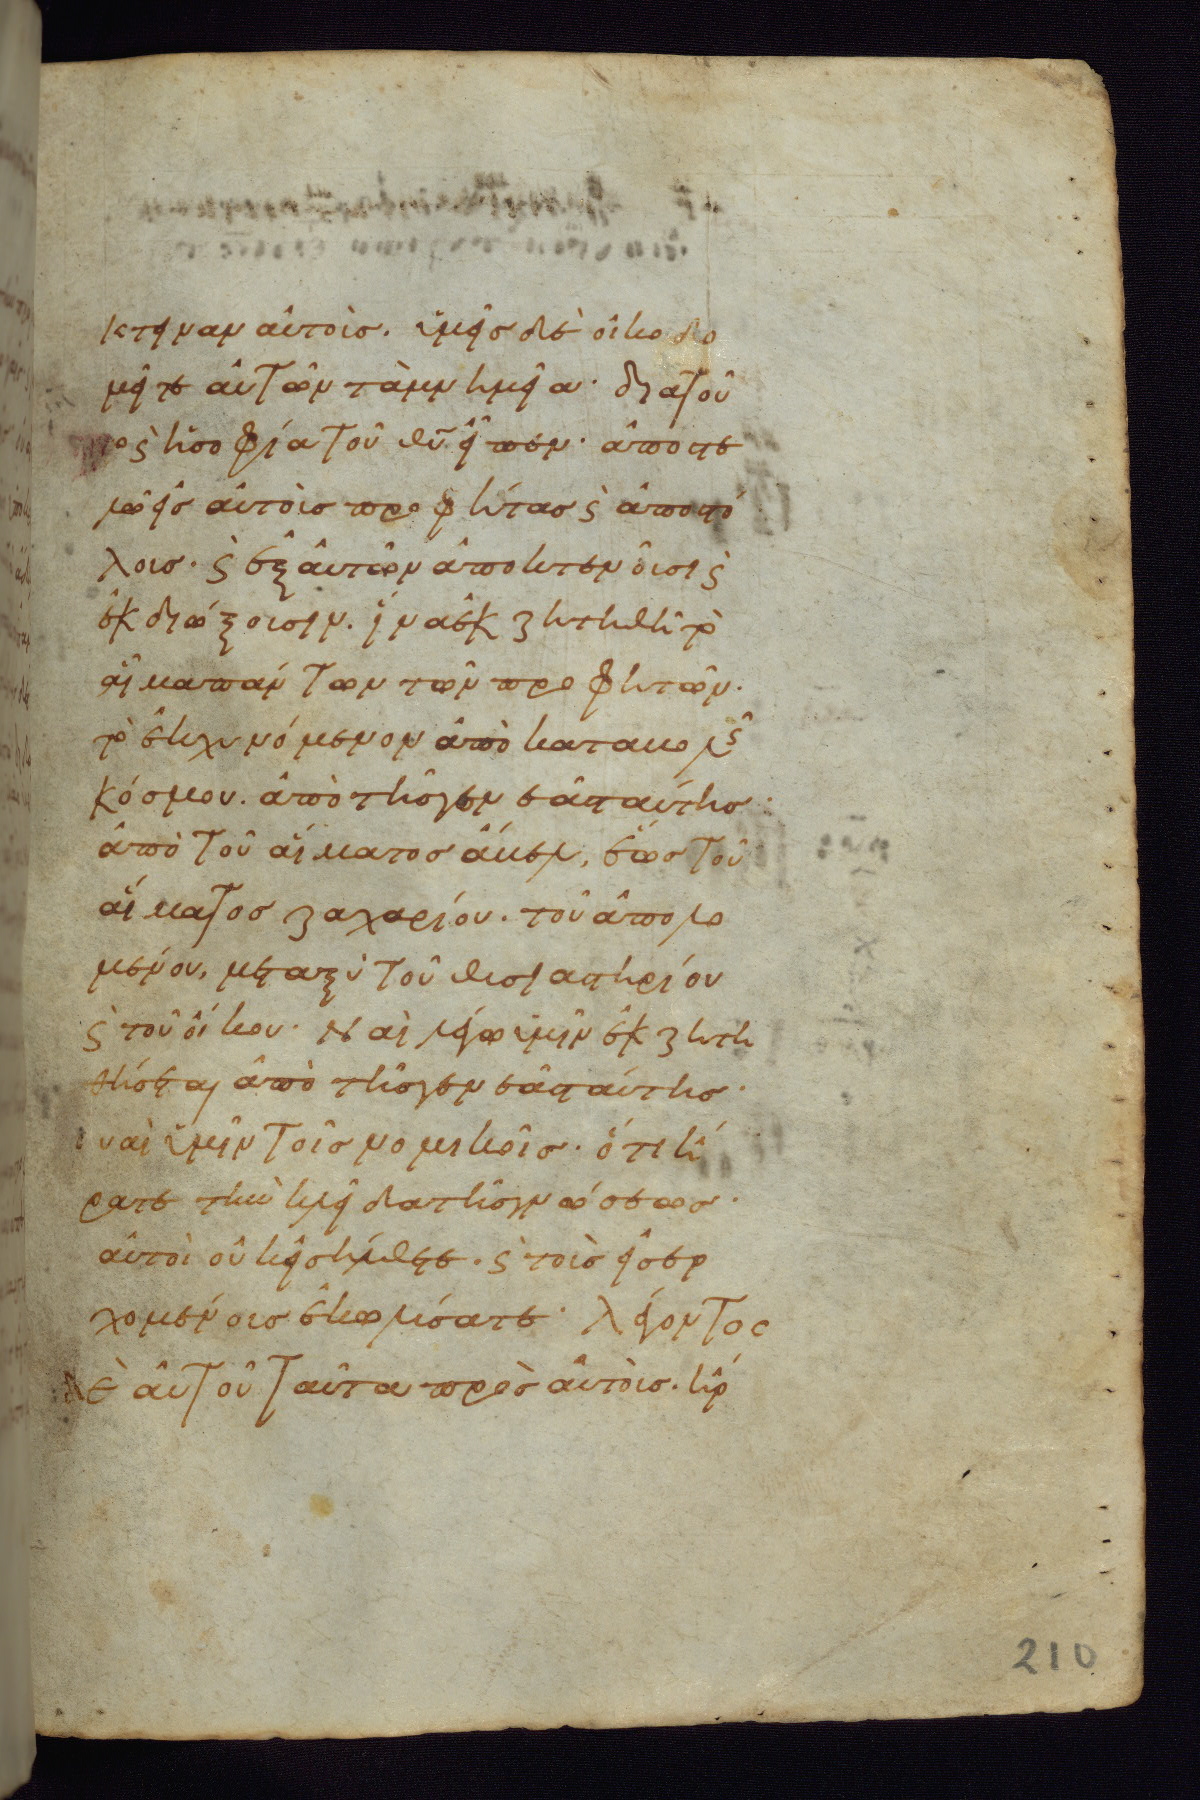 κτειναν αὐτοὺς. ὑμεῖς δὲ οἰκοδο
μεῖτε αὐτῶν τὰ μνημεῖα· διατοῦ
το ϛ ἡ σοφία τοῦ θῡ εἶπεν· ἀποστε
λῶ εἰς αὐτοὺς προφήτας ϛ ἀποστό
λους· ϛ ἐξ αὐτῶν ἀποκτενοῦσι ϛ
ἐκδιώξουσιν. ἵνα ἐκζητηθῆ τὸ
αἷμα πάντων τῶν προφητῶν.
τὸ ἐκχυνόμενον ἀπὸ καταβολῆς
κόσμου. ἀπὸ τῆς γενεᾶς ταύτης
ἀπὸ τοῦ αἵματος ἄβελ, ἕως τοῦ
αἵματος ζαχαρίου. τοῦ ἀπολο
μένου, μεταξὺ τοῦ θυσιαστηρίου
ϛ τοῦ οἴκου· Ναὶ λέγω ὑμῖν ἐκζητη
θήσεται ἀπὸ τῆς γενεᾶς ταύτης·
υαὶ ὑμῖν τοῖς νομικοῖς· ὅτι ἤ
ρατε τὴν κλεῖδα τῆς γνώσεως·
αὐτοὶ οὐκ εἰσήλθετε. ϛ τοὺς εἰσερ
χομένους ἐκωλύσατε· λέγοντος
δὲ αὐτοῦ ταῦτα πρὸς αὐτοὺς. ἤρ
210